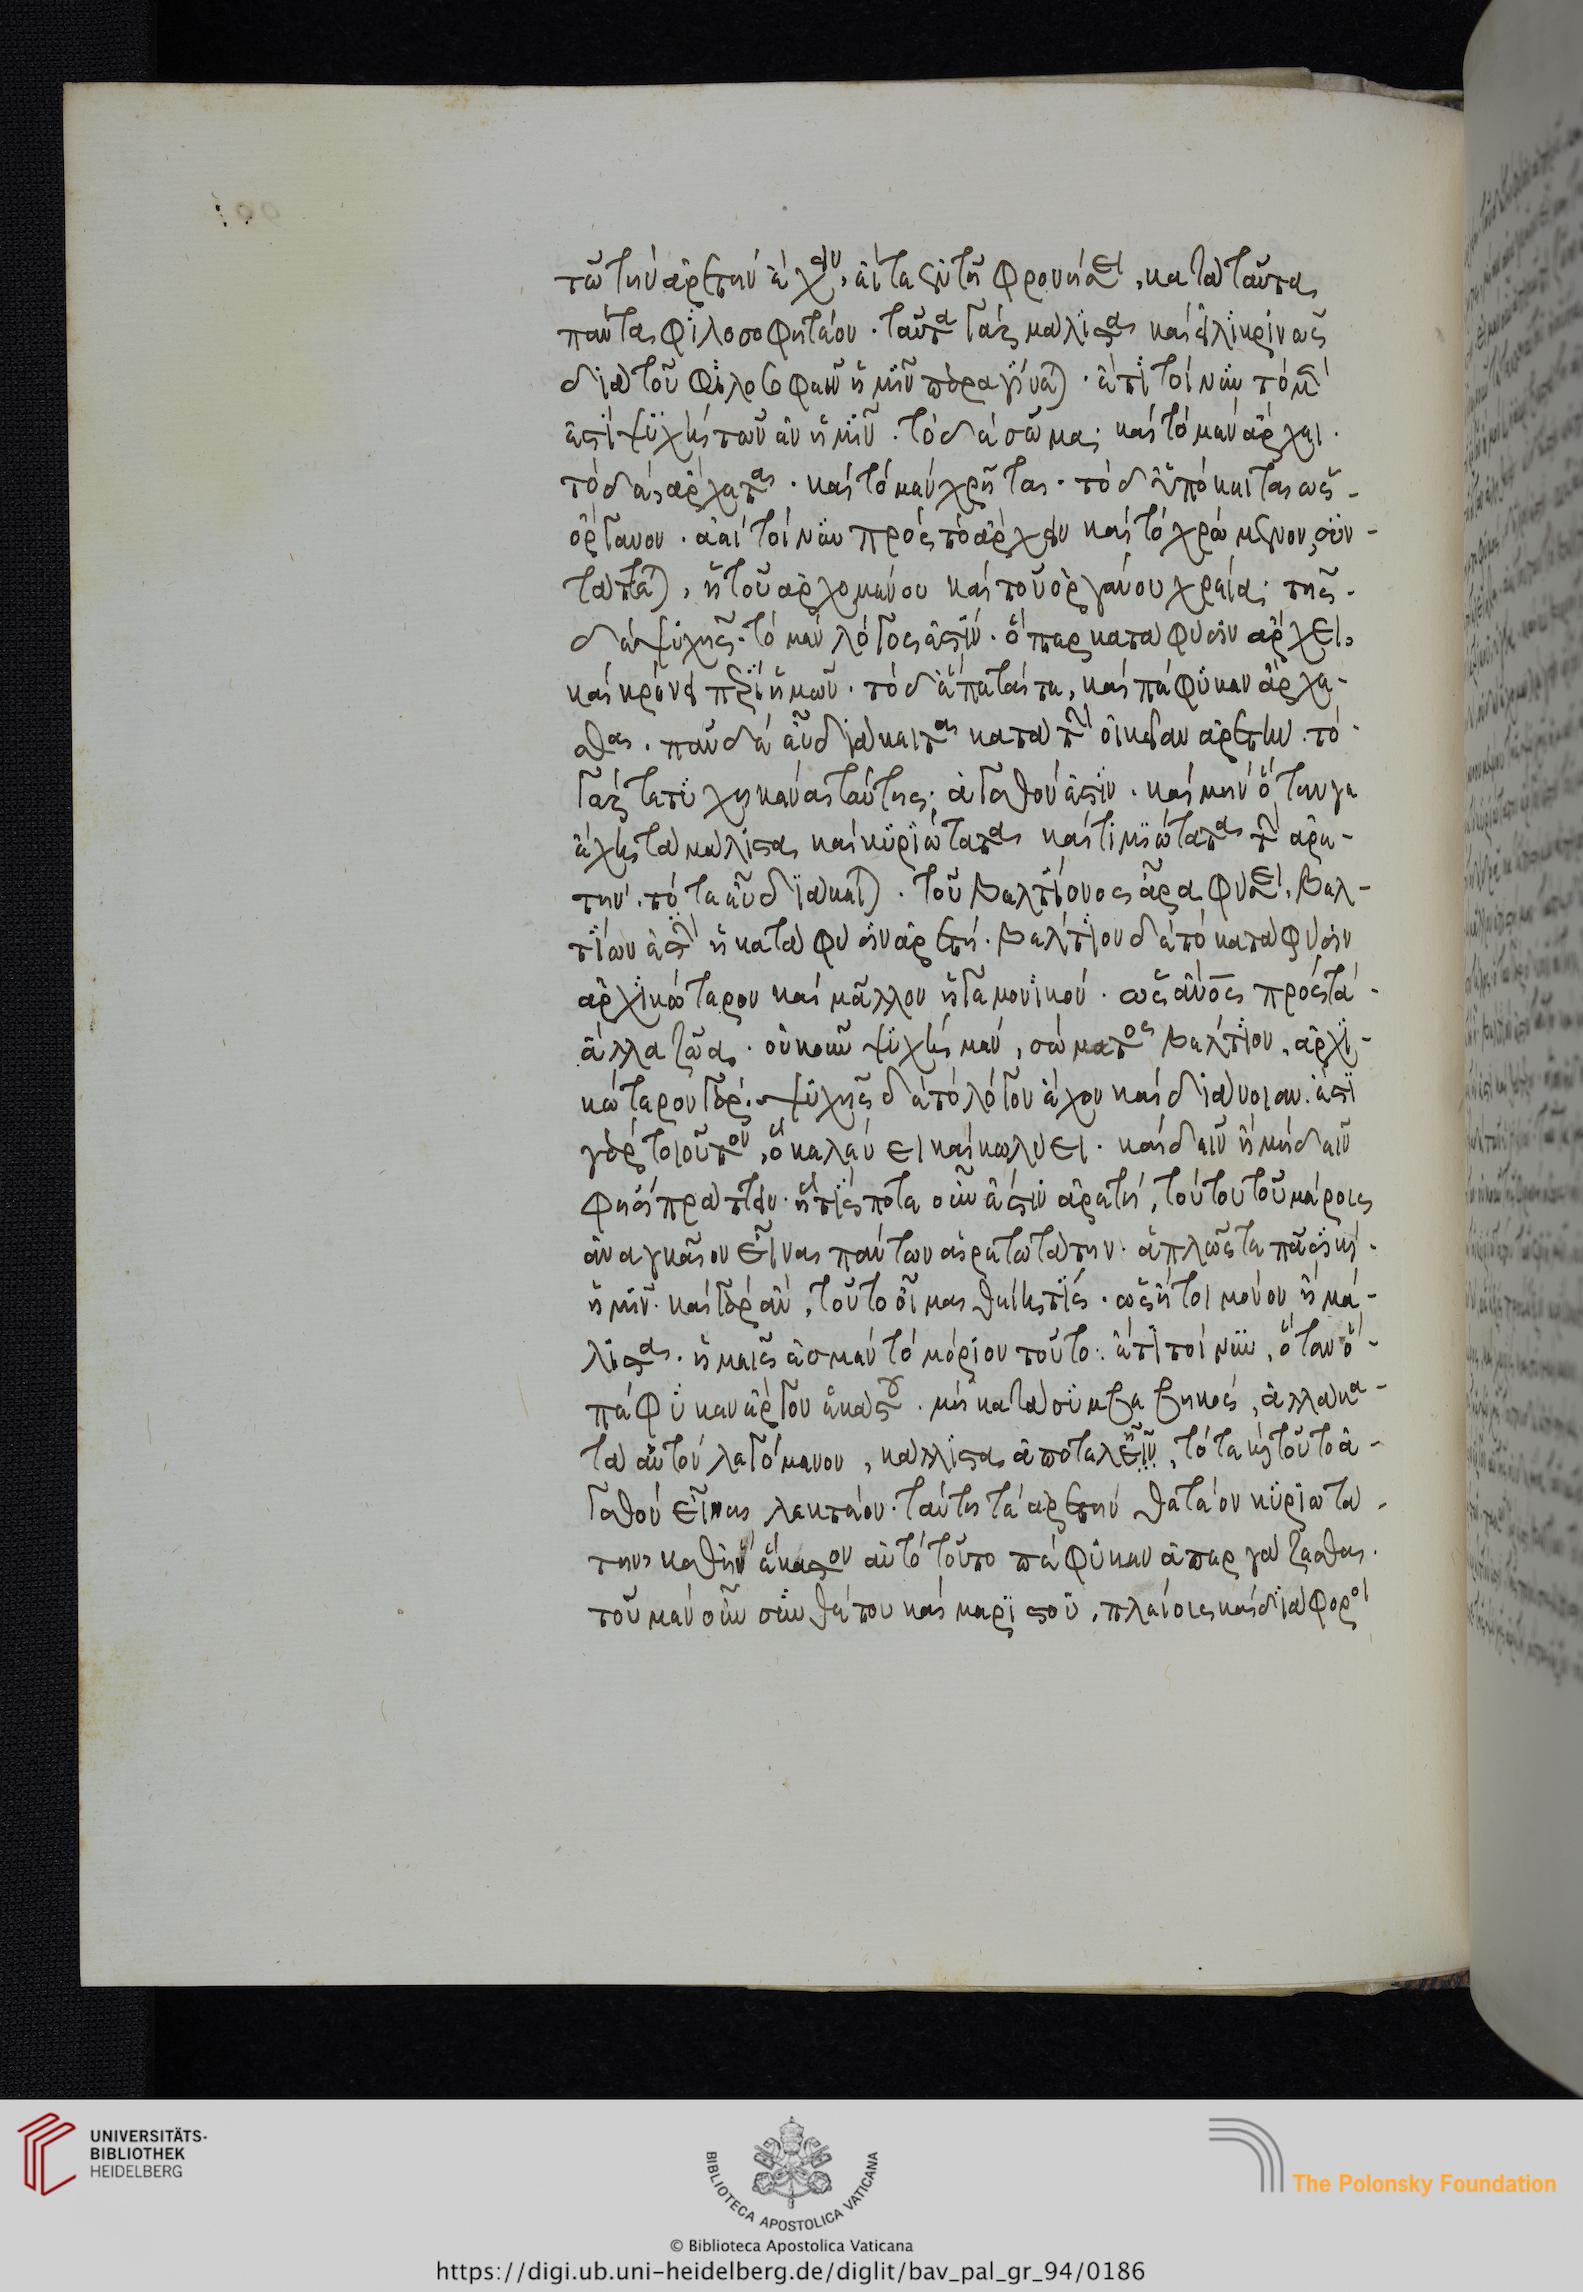 τῶ τὴν ἀρετὴν ἔχειν, εἴτ' ἐν τῆ φρονήσει, κατὰ ταῦτα
πάντα φιλοσοφητέον. ταῦτα γὰρ μάλιστα καὶ εἰλικρινῶς
διὰ τοῦ φιλοσοφεῖν ἡμῖν παραγίνεται. ἔτι τοίνυν τὸ μὲν
ἐστὶ ψυχὴ τῶν ἐν ἡμῖν. τὸ δὲ σῶμα· καὶ τὸ μὲν ἄρχει.
τὸ δὲ, ἄρχεται. καὶ τὸ μὲν χρῆται. τὸ δ' ὑπόκειται ὡς
ὄργανον. ἀεὶ τοίνυν πρὸς τὸ ἄρχειν καὶ τὸ χρώμενον, συν-
τάττεται, ἡ τοῦ ἀρχομένου καὶ τοῦ ὀργάνου χρεία· τῆς
δὲ ψυχῆς. τὸ μὲν λόγος ἐστίν. ὅπερ κατὰ φύσιν ἄρχει,
καὶ κρίνει περὶ ἡμῶν. τὸ δ' ἕπεταί τε, καὶ πέφυκεν ἄρχε-
σθαι. πᾶν δὲ εὖ διάκειται κατὰ τὴν οἰκείαν ἀρετήν. τὸ
γὰρ τετυχηκέναι ταύτης· ἀγαθόν ἐστιν. καὶ μὴν ὅταν γε
ἔχη τὰ μάλιστα καὶ κυριώτατα καὶ τιμιώτατα τὴν ἀρε-
τὴν. τότε εὖ διάκειται. τοῦ βελτίονος ἄρα φύσει, βελ-
τίων ἐστὶν ἡ κατὰ φύσιν ἀρετή. βέλτιον δὲ τὸ κατὰ φύσιν
ἀρχικώτερον καὶ μᾶλλον ἡγεμονικόν. ὡς ἄνθρωπος πρὸς τὰ
ἄλλα ζῶα. οὐκοῦν ψυχὴ μὲν, σώματος βέλτιον, ἀρχι-
κώτερον γάρ· ψυχῆς δὲ τὸ λόγον ἔχον καὶ διάνοιαν. ἔστι
γὰρ τοιοῦτον, ὃ κελεύει καὶ κωλύει. καὶ δεῖν ἢ μὴ δεῖν
φησὶ πράττειν. ἥτις ποτε οὖν ἐστὶν ἀρετὴ, τούτου τοῦ μέρους
ἀναγκαῖον εἶναι πάντων αἱρετωτάτην. ἁπλῶς τε πᾶσι καὶ
ἡμῖν. καὶ γὰρ ἂν, τοῦτο οἶμαι θείη τίς. ὡς ἤτοι μόνον ἢ μά-
λιστα. ἡμεῖς ἐσμὲν τὸ μόριον τοῦτο: ἔτι τοίνυν, ὅταν ὃ
πέφυκεν ἔργον ἑκάστου. μὴ κατὰ συμβεβηκὸς, ἀλλὰ κα-
τὰ αὑτὸν λεγόμενον, κάλλιστα ἀποτελεῖν, τότε καὶ τοῦτο ἀ-
γαθὸν εἶναι λεκτέον. ταύτην τε ἀρετὴν θετέον κυριωτά-
την, καθ' ἣν ἕκαστον αὐτὸ τοῦτο πέφυκεν ἀπεργάζεσθαι.
τοῦ μὲν οὖν συνθέτου καὶ μεριστοῦ, πλείους καὶ διάφοροι
UNIVERSITÄTS-
BIBLIOTHEK
HEIDELBERG
BIBLIOTECA APOSTOLICA VATICANA
The Polonsky Foundation
© Biblioteca Apostolica Vaticana
https://digi.ub.uni-heidelberg.de/diglit/bav_pal_gr_94/0186